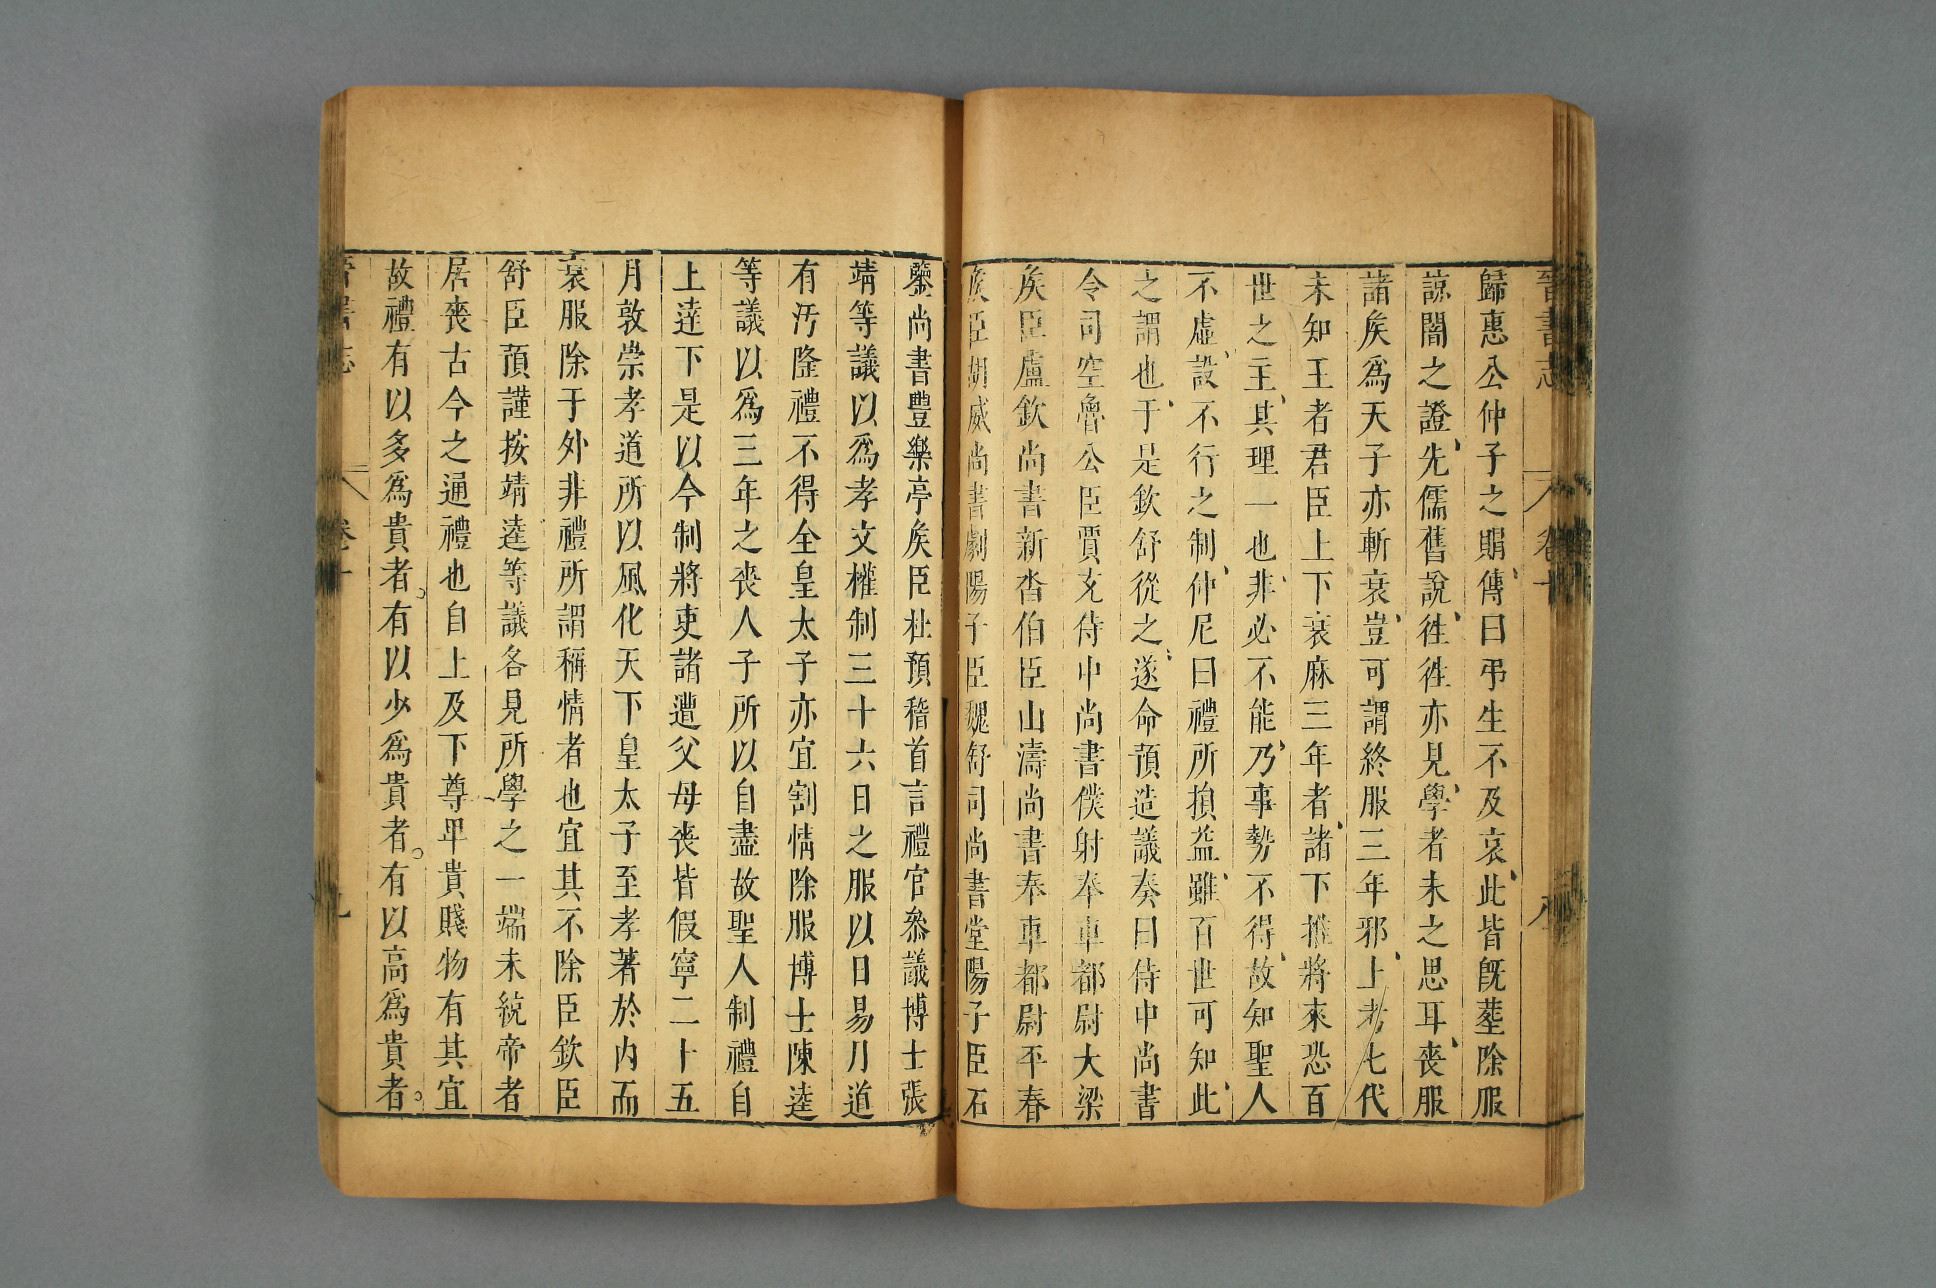 晉書志 卷十 八
歸惠公仲子之賵傳曰弔生不及哀此皆旣葬除服
諒闇之證先儒舊說徃徃亦見學者未之思耳喪服
諸矦爲天子亦斬衰豈可謂終服三年邪上考七代
未知王者君臣上下衰麻三年者諸下推將來恐百
世之主其理一也非必不能乃事勢不得故知聖人
不虛設不行之制仲尼曰禮所損益雖百世可知此
之謂也于是欽舒從之遂命預造議奏曰侍中尚書
令司空魯公臣賈充侍中尚書僕射奉車都尉大梁
矦臣盧欽尚書新沓伯臣山濤尚書奉車都尉平春
矦臣胡威尚書劇陽子臣魏舒司尚書堂陽子臣石
鑒尚書豐樂亭矦臣杜預稽首言禮官叅議博士張
靖等議以爲孝文權制三十六日之服以日易月道
有汚隆禮不得全皇太子亦宜割情除服博士陳逵
等議以爲三年之喪人子所以自盡故聖人制禮自
上逹下是以今制將吏諸遭父母喪皆假寧二十五
月敦崇孝道所以風化天下皇太子至孝著於內而
衰服除于外非禮所謂稱情者也宜其不除臣欽臣
舒臣預謹按靖逵等議各見所學之一端未統帝者
居喪古今之通禮也自上及下尊甲貴賤物有其宜
故禮有以多爲貴者有以少爲貴者有以高爲貴者
晉書志 卷十 九